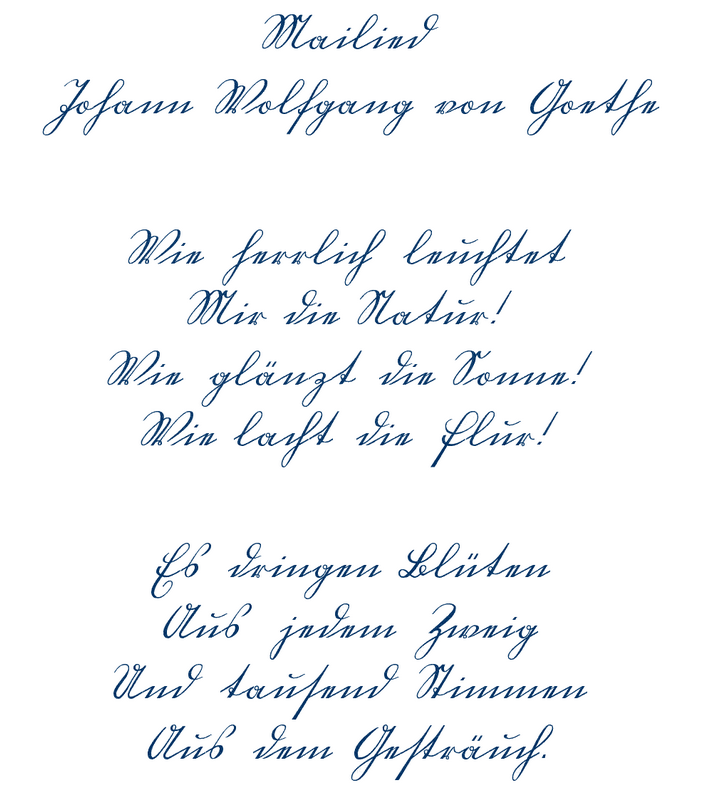 Mailied
Johann Wolfgang von Goethe
Wie herrlich leuchtet
Mir die Natur!
Wie glänzt die Sonne!
Wie lacht die Flur!
Es dringen Blüten
Aus jedem Zweig
Und tausend Stimmen
Aus dem Gesträuch.